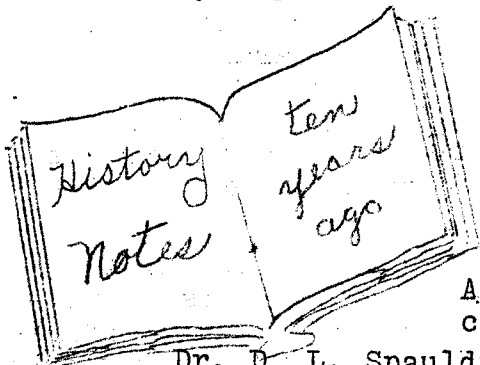 History
Notes
ten
years
ago
A
c
Dr. D. L. Spauld